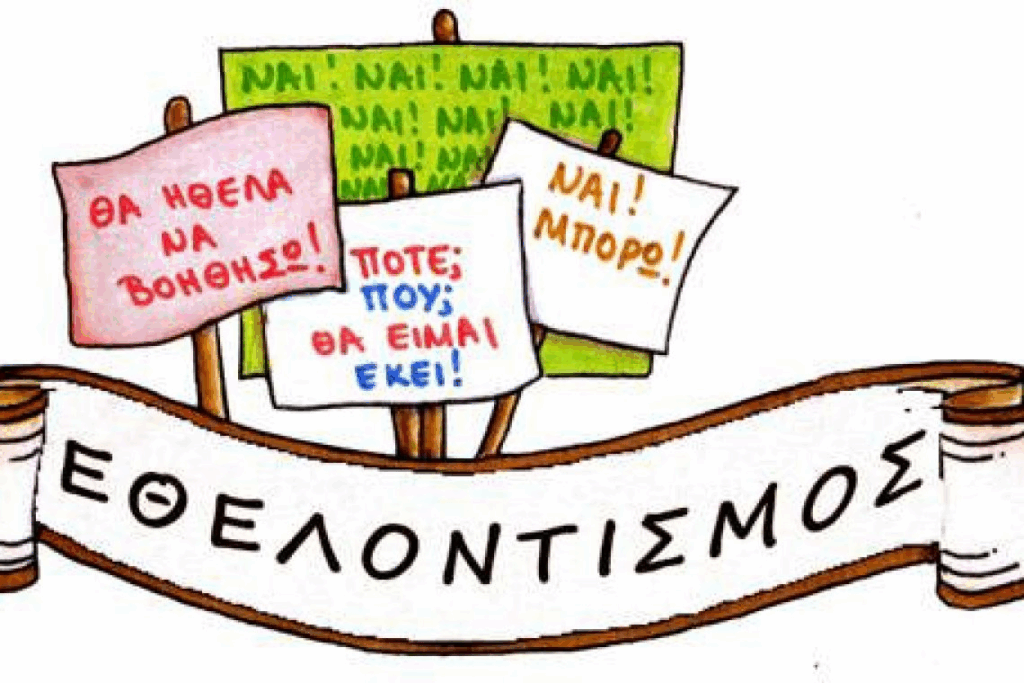 ΝΑΙ! ΝΑΙ! ΝΑΙ! ΝΑΙ!
ΝΑΙ! ΝΑΙ! ΝΑΙ!
ΝΑΙ! ΝΑ
ΝΑΙ ΝΑ
ΘΑ ΗΘΕΛΑ
ΝΑ
ΒΟΗΘΗΣΩ!
ΠΟΤΕ;
ΠΟΥ;
ΘΑ ΕΙΜΑΙ
ΕΚΕΙ!
ΝΑΙ!
ΜΠΟΡΩ!
ΕΘΕΛΟΝΤΙΣΜΟΣ